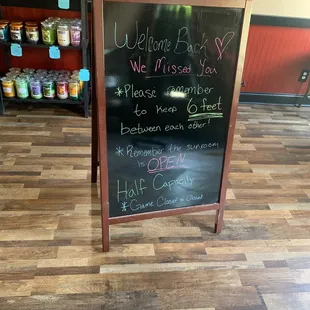 Welcome Back
We Missed You
*Please remember
to keep 6 feet
between each other!
*Remember the sunroom
is OPEN
Half Capacity
*Game Closet is Closed